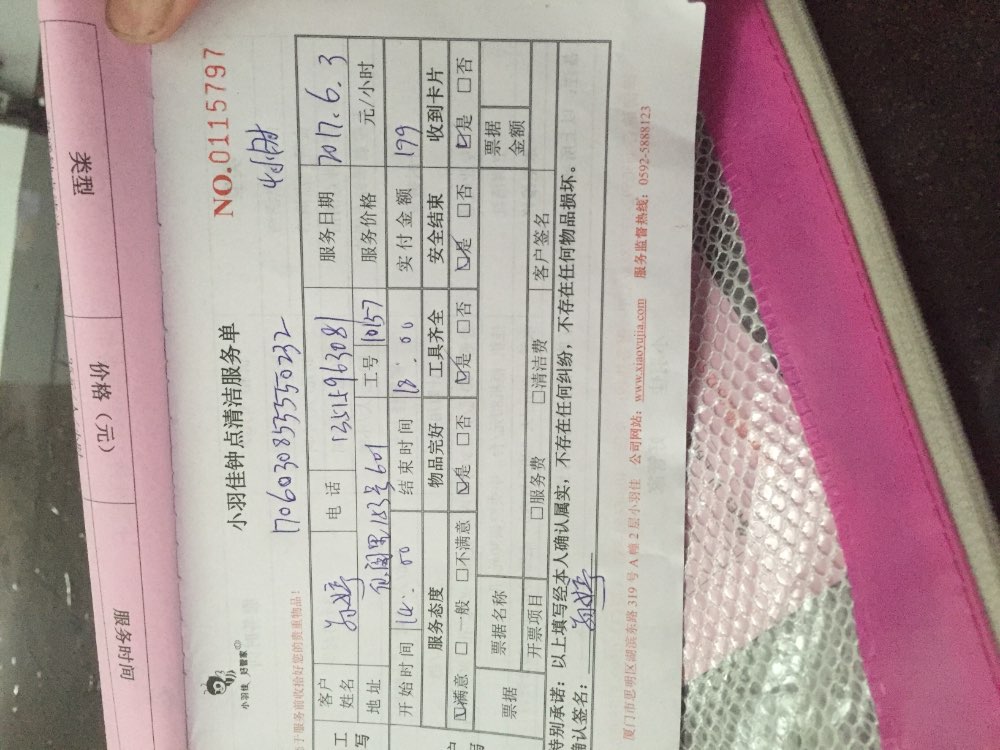 类型
价格（元）
服务时间
NO.01115797
小羽佳钟点清洁服务单
小羽佳 好管家
17060308555550232
于服务前收拾好您的贵重物品！
客户姓名
电 话
服务日期 2017.6.3
地 址 183号601
工号 10157
服务价格 元/小时
开始时间 14:00 结束时间 18:00 实付金额 199
服务态度 物品完好 工具齐全 安全结束 收到卡片
☑满意 □一般 □不满意 ☑是 □否 ☑是 □否 ☑是 □否 ☑是 □否
票据 票据名称 票据金额
开票项目 □服务费 □清洁费 客户签名
特别承诺：以上填写经本人确认属实，不存在任何纠纷，不存在任何物品损坏。
确认签名：
厦门市思明区湖滨东路 319 号 A 幢 2 层小羽佳 公司网站：www.xiaoyujia.com 服务监督热线：0592-5888123